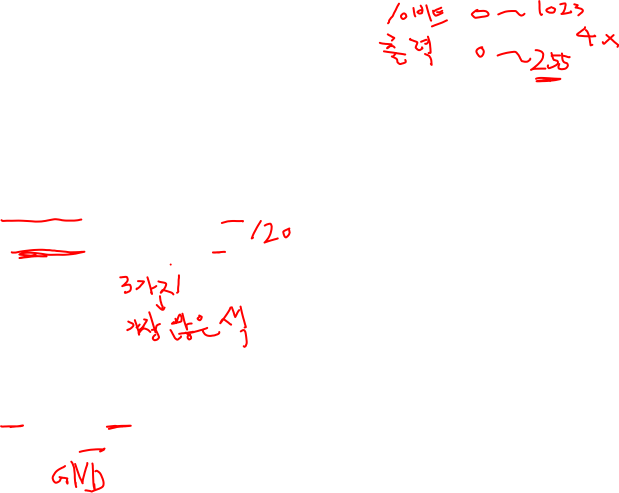 10비트 0~1023
출력 0~255 4x
120
3가지
가장 많은 색
GND